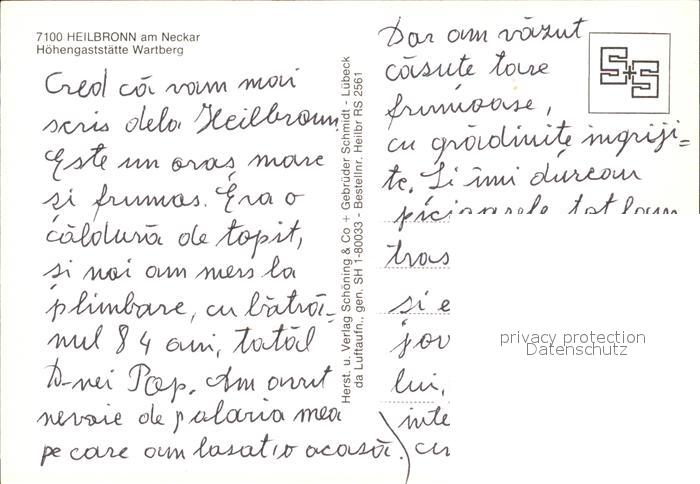 7100 HEILBRONN am Neckar
Höhengaststätte Wartberg
Cred că v-am mai
scris dela Heilbronn.
Este un oraș mare
și frumos. Era o
căldură de topit,
și noi am mers la
plimbare, cu bătrâ=
nul 84 ani, tatăl
D-nei Pop. Am avut
nevoie de pălaria mea
pe care am lasat-o acasă.
Herst. u. Verlag Schöning & Co + Gebrüder Schmidt - Lübeck
da Luftaufn., gen. SH 1-80033 - Bestellnr. Heilbr RS 2561
S+S
Dar am văzut
căsuțe tare
frumoase,
cu grădinițe îngriji=
te. Și îmi dureau
picioarele tot
tras
și e
jov
lui,
inte
cu
privacy protection
Datenschutz